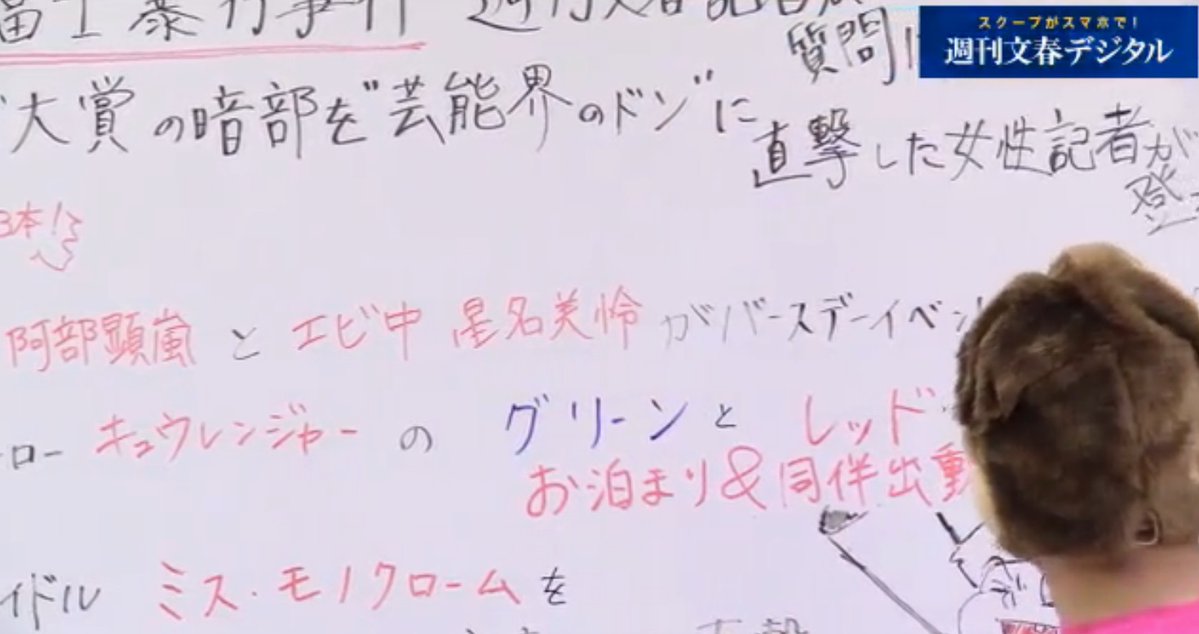 スクープがスマホで!
週刊文春デジタル
暴行事件 週刊文春記者が
質問に
大賞の暗部を"芸能界のドン"に
直撃した女性記者が
登
3本!
阿部顕嵐 と エビ中 星名美怜 がバースデーイベン
ロー キュウレンジャー の グリーン と レッド
お泊まり&同伴出動
イドル ミス・モノクローム を